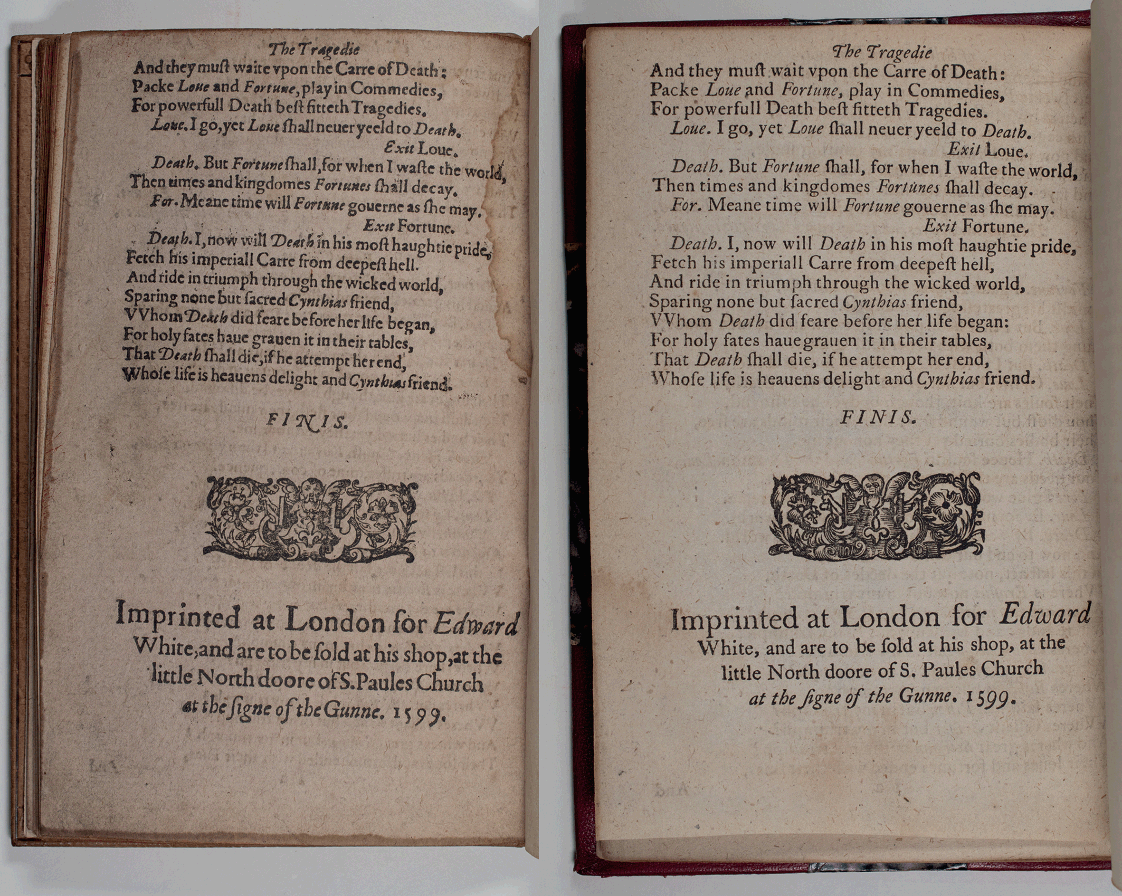 The Tragedie
And they muſt waite vpon the Carre of Death:
Packe Loue and Fortune, play in Commedies,
For powerfull Death beſt fitteth Tragedies.
Loue. I go, yet Loue ſhall neuer yeeld to Death.
Exit Loue.
Death. But Fortune ſhall, for when I waſte the world,
Then times and kingdomes Fortunes ſhall decay.
For. Meane time will Fortune gouerne as ſhe may.
Exit Fortune.
Death. I, now will Death in his moſt haughtie pride,
Fetch his imperiall Carre from deepeſt hell.
And ride in triumph through the wicked world,
Sparing none but ſacred Cynthias friend,
VVhom Death did feare before her life began,
For holy fates haue grauen it in their tables,
That Death ſhall die, if he attempt her end,
Whoſe life is heauens delight and Cynthias friend.
FINIS.
Imprinted at London for Edward
White, and are to be ſold at his shop, at the
little North doore of S. Paules Church
at the ſigne of the Gunne. 1599.
The Tragedie
And they muſt wait vpon the Carre of Death:
Packe Loue and Fortune, play in Commedies,
For powerfull Death beſt fitteth Tragedies.
Loue. I go, yet Loue ſhall neuer yeeld to Death.
Exit Loue.
Death. But Fortune ſhall, for when I waſte the world,
Then times and kingdomes Fortunes ſhall decay.
For. Meane time will Fortune gouerne as ſhe may.
Exit Fortune.
Death. I, now will Death in his moſt haughtie pride,
Fetch his imperiall Carre from deepeſt hell,
And ride in triumph through the wicked world,
Sparing none but ſacred Cynthias friend,
VVhom Death did feare before her life began:
For holy fates haue grauen it in their tables,
That Death ſhall die, if he attempt her end,
Whoſe life is heauens delight and Cynthias friend.
FINIS.
Imprinted at London for Edward
White, and are to be ſold at his shop, at the
little North doore of S. Paules Church
at the ſigne of the Gunne. 1599.